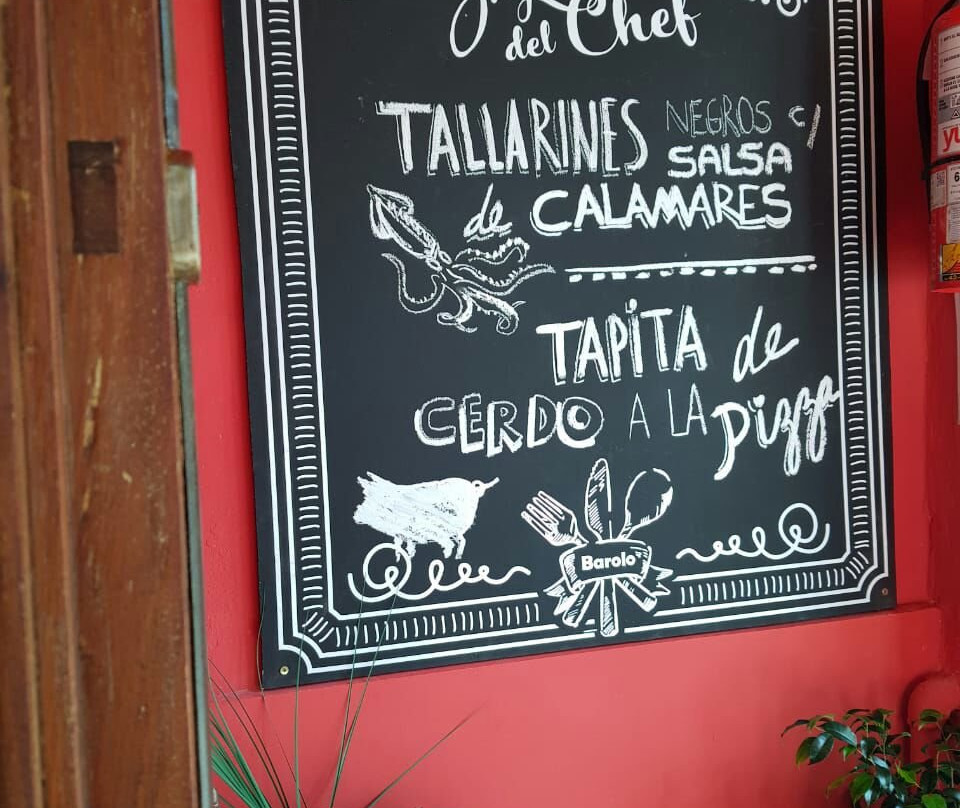 del Chef
TALLARINES NEGROS c/
SALSA
de CALAMARES
TAPITA de
CERDO A LA pizza
Barolo